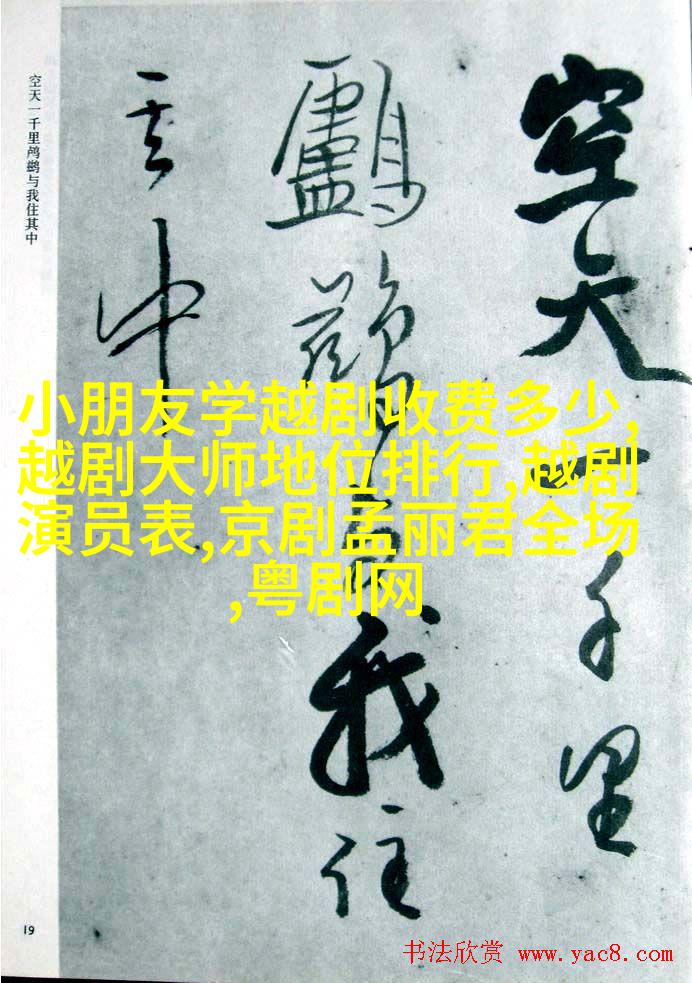 空天一千里
鸕鷀與我住
其中
空天一千里鸬鹚与我住其中
小朋友学越剧收费多少,
越剧大师地位排行,越剧
演员表,京剧孟丽君全场
,粤剧网
19
书法欣赏 www.yac8.com